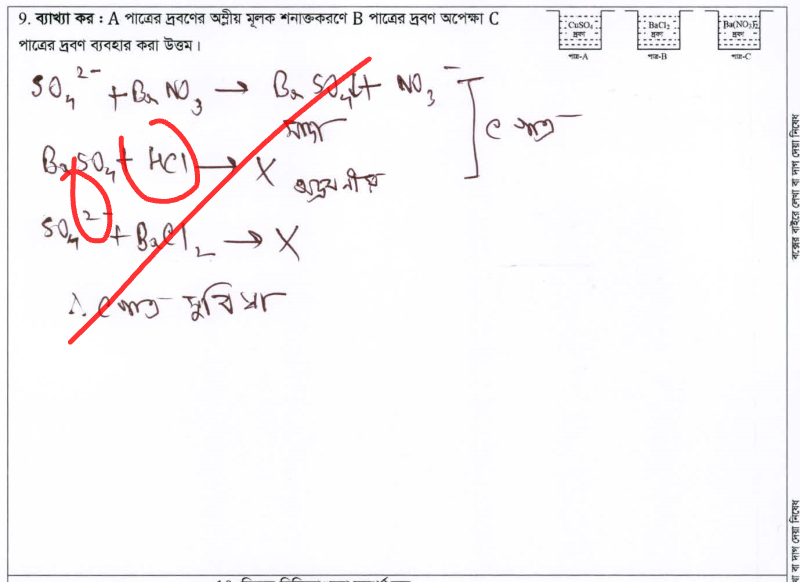 9. ব্যাখ্যা কর : A পাত্রের দ্রবণের অম্লীয় মূলক শনাক্তকরণে B পাত্রের দ্রবণ অপেক্ষা C
পাত্রের দ্রবণ ব্যবহার করা উত্তম।
CuSO₄ দ্রবণ
পাত্র-A
BaCl₂ দ্রবণ
পাত্র-B
Ba(NO₃)₂ দ্রবণ
পাত্র-C
SO₄²⁻ + BaNO₃ → BaSO₄↓ + NO₃⁻
সাদা
C পাত্র
BaSO₄ + HCl → X
অদ্রবনীয়
SO₄²⁻ + BaCl₂ → X
∴ C পাত্র সুবিধা
বক্সের বাইরে লেখা বা দাগ দেয়া নিষেধ
বা দাগ দেয়া নিষেধ